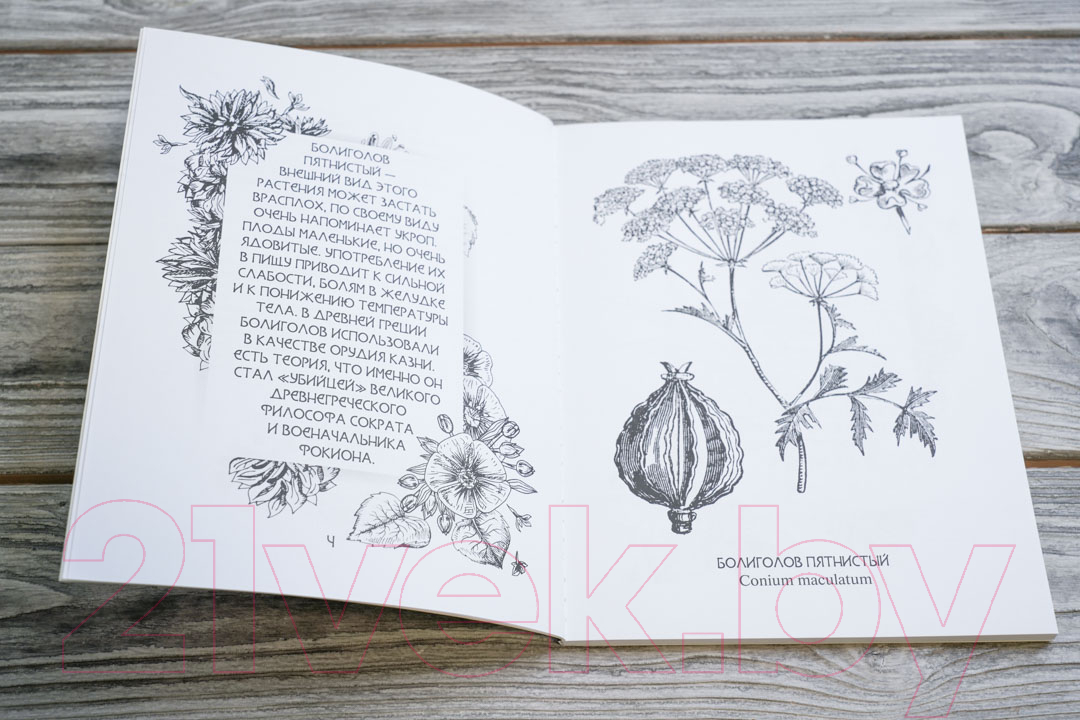 БОЛИГОЛОВ
ПЯТНИСТЫЙ —
ВНЕШНИЙ ВИД ЭТОГО
РАСТЕНИЯ МОЖЕТ ЗАСТАТЬ
ВРАСПЛОХ, ПО СВОЕМУ ВИДУ
ОЧЕНЬ НАПОМИНАЕТ УКРОП.
ПЛОДЫ МАЛЕНЬКИЕ, НО ОЧЕНЬ
ЯДОВИТЫЕ. УПОТРЕБЛЕНИЕ ИХ
В ПИЩУ ПРИВОДИТ К СИЛЬНОЙ
СЛАБОСТИ, БОЛЯМ В ЖЕЛУДКЕ
И К ПОНИЖЕНИЮ ТЕМПЕРАТУРЫ
ТЕЛА. В ДРЕВНЕЙ ГРЕЦИИ
БОЛИГОЛОВ ИСПОЛЬЗОВАЛИ
В КАЧЕСТВЕ ОРУДИЯ КАЗНИ.
ЕСТЬ ТЕОРИЯ, ЧТО ИМЕННО ОН
СТАЛ «УБИЙЦЕЙ» ВЕЛИКОГО
ДРЕВНЕГРЕЧЕСКОГО
ФИЛОСОФА СОКРАТА
И ВОЕНАЧАЛЬНИКА
ФОКИОНА.
4
БОЛИГОЛОВ ПЯТНИСТЫЙ
Conium maculatum
21vek.by